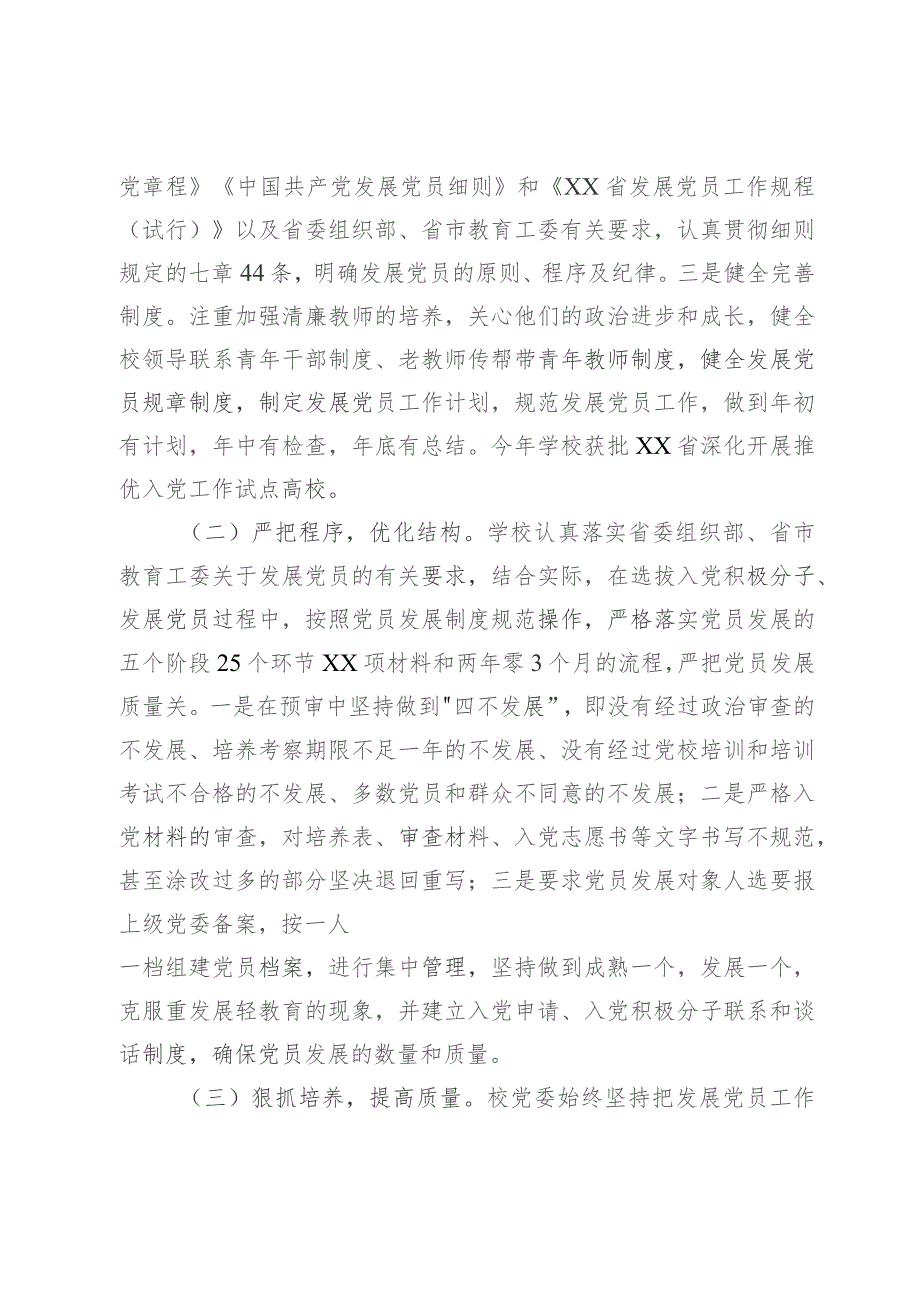 党章程》《中国共产党发展党员细则》和《XX 省发展党员工作规程
（试行）》以及省委组织部、省市教育工委有关要求，认真贯彻细则
规定的七章 44 条，明确发展党员的原则、程序及纪律。三是健全完善
制度。注重加强清廉教师的培养，关心他们的政治进步和成长，健全
校领导联系青年干部制度、老教师传帮带青年教师制度，健全发展党
员规章制度，制定发展党员工作计划，规范发展党员工作，做到年初
有计划，年中有检查，年底有总结。今年学校获批 XX 省深化开展推
优入党工作试点高校。
（二）严把程序，优化结构。学校认真落实省委组织部、省市
教育工委关于发展党员的有关要求，结合实际，在选拔入党积极分子、
发展党员过程中，按照党员发展制度规范操作，严格落实党员发展的
五个阶段 25 个环节 XX 项材料和两年零 3 个月的流程，严把党员发展
质量关。一是在预审中坚持做到"四不发展”，即没有经过政治审查的
不发展、培养考察期限不足一年的不发展、没有经过党校培训和培训
考试不合格的不发展、多数党员和群众不同意的不发展；二是严格入
党材料的审查，对培养表、审查材料、入党志愿书等文字书写不规范，
甚至涂改过多的部分坚决退回重写；三是要求党员发展对象人选要报
上级党委备案，按一人
一档组建党员档案，进行集中管理，坚持做到成熟一个，发展一个，
克服重发展轻教育的现象，并建立入党申请、入党积极分子联系和谈
话制度，确保党员发展的数量和质量。
（三）狠抓培养，提高质量。校党委始终坚持把发展党员工作